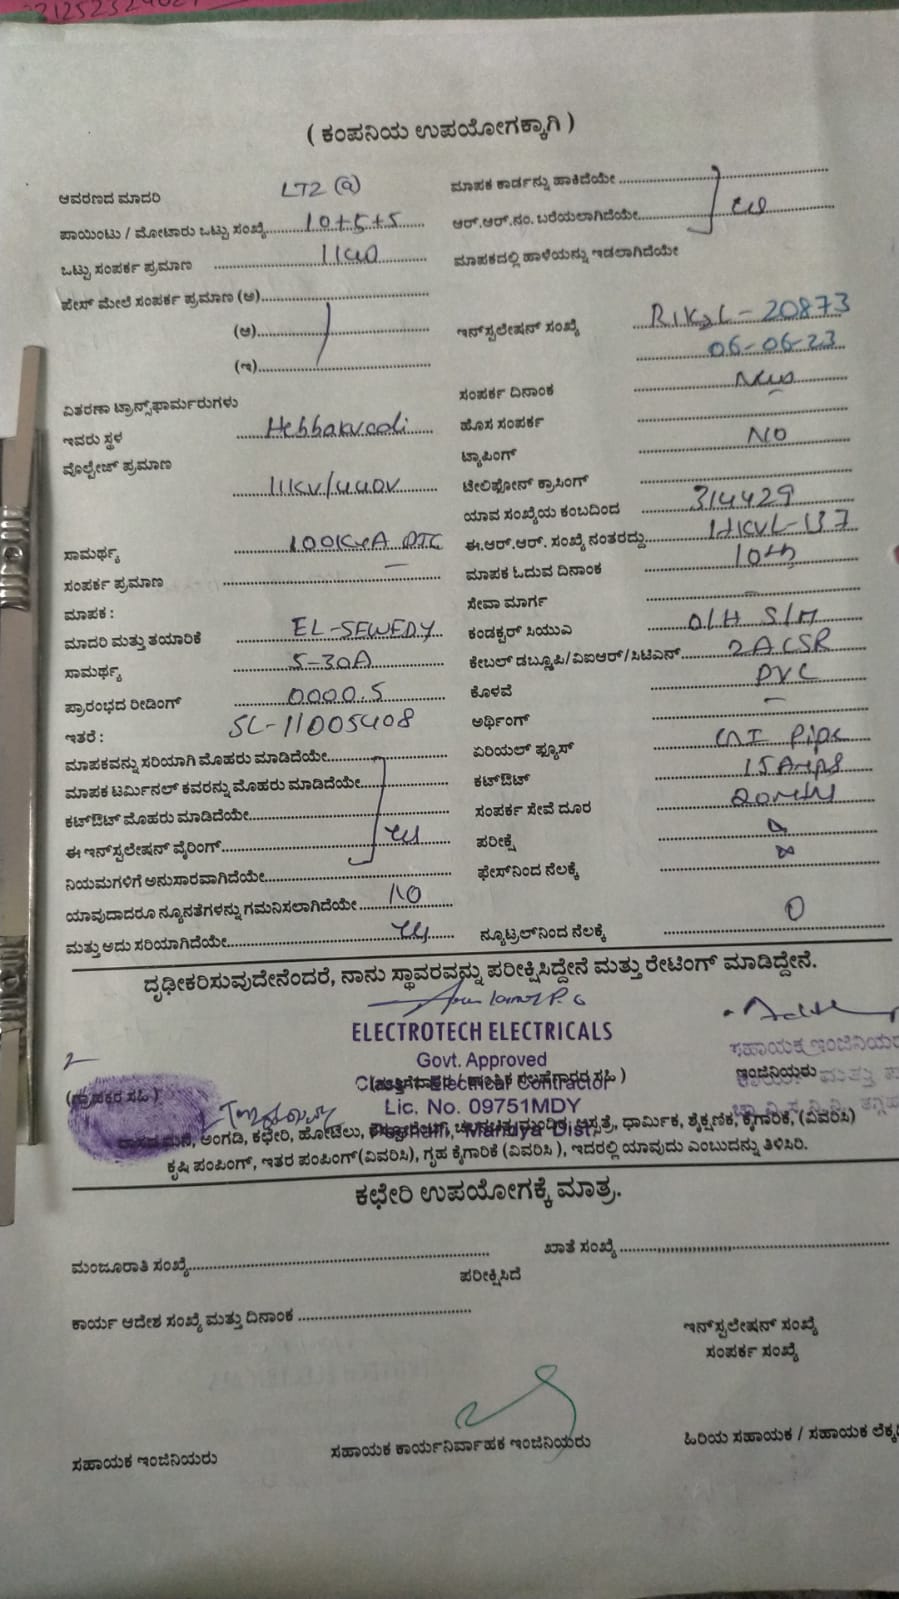 ( ಕಂಪನಿಯ ಉಪಯೋಗಕ್ಕಾಗಿ )
ಆವರಣದ ಮಾದರಿ LT2 (a)
ಪಾಯಿಂಟು / ಮೋಟಾರು ಒಟ್ಟು ಸಂಖ್ಯೆ 10+5+5
ಒಟ್ಟು ಸಂಪರ್ಕ ಪ್ರಮಾಣ
ಪೇಸ್ ಮೇಲೆ ಸಂಪರ್ಕ ಪ್ರಮಾಣ (ಅ)
(ಆ)
(ಇ)
ವಿತರಣಾ ಟ್ರಾನ್ಸ್‌ಫಾರ್ಮರುಗಳು
ಇವರು ಸ್ಥಳ
ವೊಲ್ಟೇಜ್ ಪ್ರಮಾಣ
11KV/440V
ಸಾಮರ್ಥ್ಯ 100KVA
ಸಂಪರ್ಕ ಪ್ರಮಾಣ
ಮಾಪಕ :
ಮಾದರಿ ಮತ್ತು ತಯಾರಿಕೆ EL-SEWEDY
ಸಾಮರ್ಥ್ಯ 5-30A
ಪ್ರಾರಂಭದ ರೀಡಿಂಗ್ 0000.5
ಇತರೆ : SL-11005408
ಮಾಪಕವನ್ನು ಸರಿಯಾಗಿ ಮೊಹರು ಮಾಡಿದೆಯೇ
ಮಾಪಕ ಟರ್ಮಿನಲ್ ಕವರನ್ನು ಮೊಹರು ಮಾಡಿದೆಯೇ
ಕಟ್‌ಔಟ್ ಮೊಹರು ಮಾಡಿದೆಯೇ
ಈ ಇನ್‌ಸ್ಪಲೇಷನ್ ವೈರಿಂಗ್
ನಿಯಮಗಳಿಗೆ ಅನುಸಾರವಾಗಿದೆಯೇ
ಯಾವುದಾದರೂ ನ್ಯೂನತೆಗಳನ್ನು ಗಮನಿಸಲಾಗಿದೆಯೇ NO
ಮತ್ತು ಅದು ಸರಿಯಾಗಿದೆಯೇ
ಮಾಪಕ ಕಾರ್ಡನ್ನು ಹಾಕಿದೆಯೇ
ಆರ್.ಆರ್.ನಂ. ಬರೆಯಲಾಗಿದೆಯೇ
ಮಾಪಕದಲ್ಲಿ ಹಾಳೆಯನ್ನು ಇಡಲಾಗಿದೆಯೇ
ಇನ್‌ಸ್ಪಲೇಷನ್ ಸಂಖ್ಯೆ
06-06-23
ಸಂಪರ್ಕ ದಿನಾಂಕ New
ಹೊಸ ಸಂಪರ್ಕ
ಟ್ಯಾಪಿಂಗ್ NO
ಟೀಲಿಫೋನ್ ಕ್ರಾಸಿಂಗ್
ಯಾವ ಸಂಖ್ಯೆಯ ಕಂಬದಿಂದ 314429
ಈ.ಆರ್.ಆರ್. ಸಂಖ್ಯೆ ನಂತರದ್ದು
ಮಾಪಕ ಓದುವ ದಿನಾಂಕ 10th
ಸೇವಾ ಮಾರ್ಗ
ಕಂಡಕ್ಟರ್ ಸಿಯುಎ O/H S/M
ಕೇಬಲ್ ಡಬ್ಲೂಪಿ/ವಿಐಆರ್/ಸಿಟಿಎಸ್ 2ACSR
ಕೊಳವೆ PVC
ಅರ್ಥಿಂಗ್
ಏರಿಯಲ್ ಫ್ಯೂಸ್ GI Pipe
ಕಟ್‌ಔಟ್ 15 Amps
ಸಂಪರ್ಕ ಸೇವೆ ದೂರ
ಪರೀಕ್ಷೆ
ಫೇಸ್‌ನಿಂದ ನೆಲಕ್ಕೆ
ನ್ಯೂಟ್ರಲ್‌ನಿಂದ ನೆಲಕ್ಕೆ 0
ದೃಢೀಕರಿಸುವುದೇನೆಂದರೆ, ನಾನು ಸ್ಥಾವರವನ್ನು ಪರೀಕ್ಷಿಸಿದ್ದೇನೆ ಮತ್ತು ರೇಟಿಂಗ್ ಮಾಡಿದ್ದೇನೆ.
ELECTROTECH ELECTRICALS
Govt. Approved
Electrical Contractor
Lic. No. 09751MDY
Mandya Dist
ಸಹಾಯಕ ಇಂಜಿನಿಯರ
ಇಂಜಿನಿಯರು
ಅಂಗಡಿ, ಕಛೇರಿ, ಹೋಟೆಲು, ಆಸ್ಪತ್ರೆ, ಧಾರ್ಮಿಕ, ಶೈಕ್ಷಣಿಕ, ಕೈಗಾರಿಕೆ, (ವಿವರಿಸಿ)
ಕೃಷಿ ಪಂಪಿಂಗ್, ಇತರ ಪಂಪಿಂಗ್ (ವಿವರಿಸಿ), ಗೃಹ ಕೈಗಾರಿಕೆ (ವಿವರಿಸಿ ), ಇದರಲ್ಲಿ ಯಾವುದು ಎಂಬುದನ್ನು ತಿಳಿಸಿರಿ.
ಕಛೇರಿ ಉಪಯೋಗಕ್ಕೆ ಮಾತ್ರ.
ಮಂಜೂರಾತಿ ಸಂಖ್ಯೆ
ಖಾತೆ ಸಂಖ್ಯೆ
ಪರೀಕ್ಷಿಸಿದೆ
ಕಾರ್ಯ ಆದೇಶ ಸಂಖ್ಯೆ ಮತ್ತು ದಿನಾಂಕ
ಇನ್‌ಸ್ಪಲೇಷನ್ ಸಂಖ್ಯೆ
ಸಂಪರ್ಕ ಸಂಖ್ಯೆ
ಸಹಾಯಕ ಇಂಜಿನಿಯರು
ಸಹಾಯಕ ಕಾರ್ಯನಿರ್ವಾಹಕ ಇಂಜಿನಿಯರು
ಹಿರಿಯ ಸಹಾಯಕ / ಸಹಾಯಕ